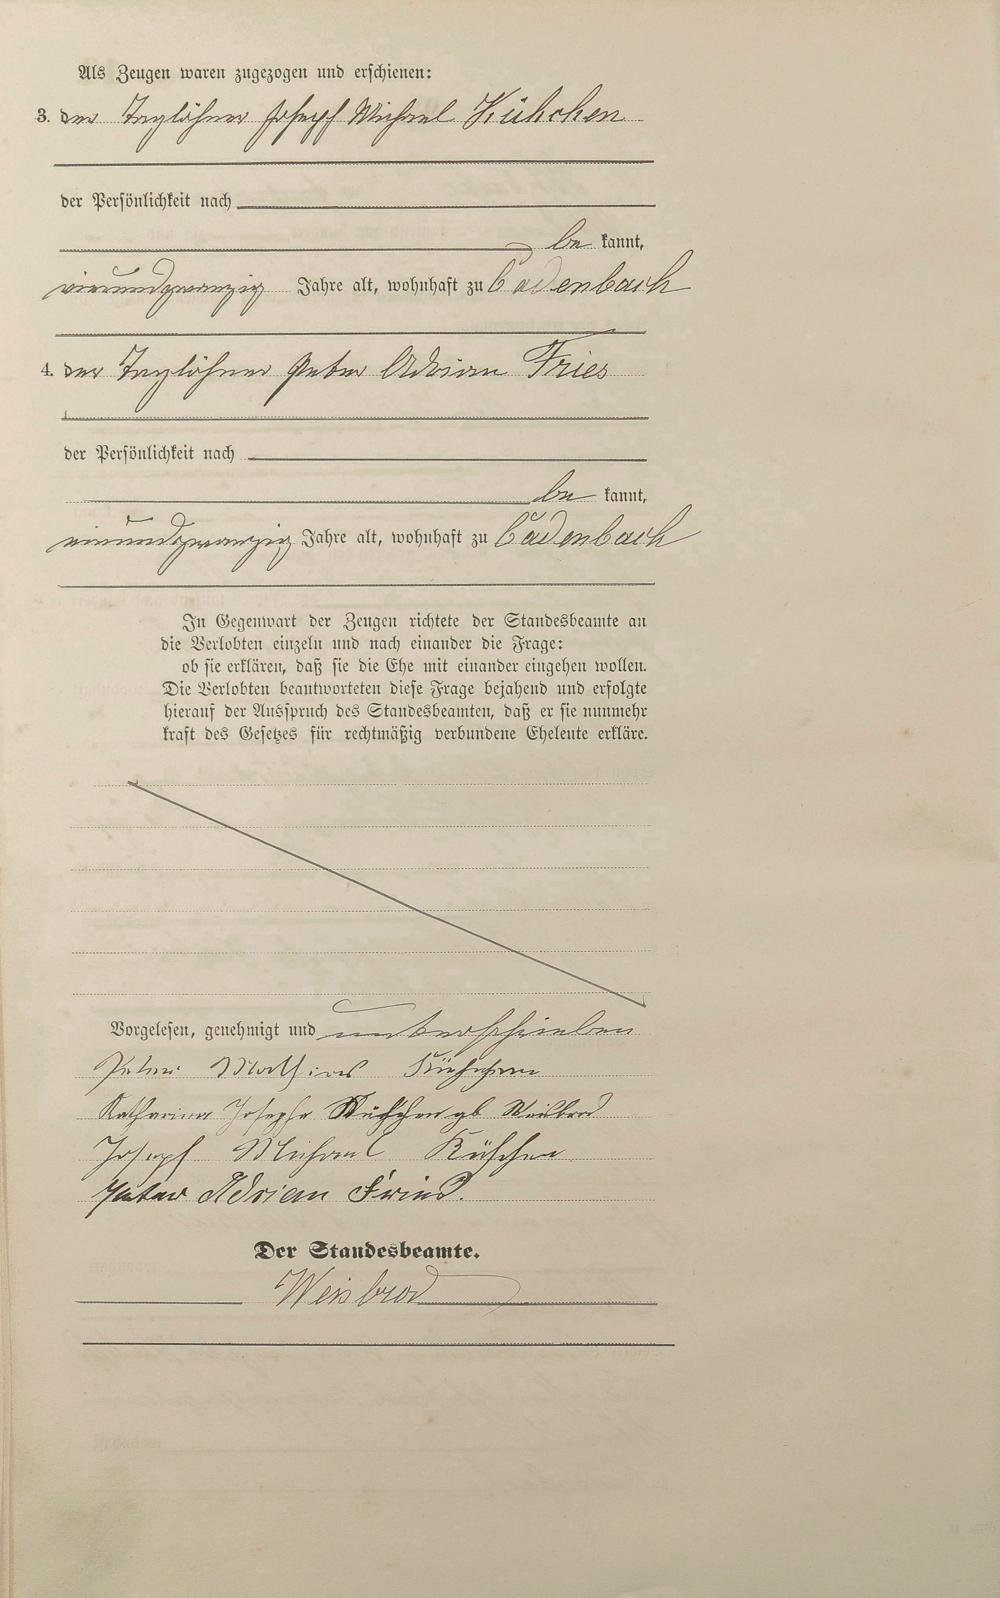 Als Zeugen waren zugezogen und erschienen:
3. der Taglöhner Joseph Michael Kühchen
der Persönlichkeit nach
be kannt,
vierundzwanzig Jahre alt, wohnhaft zu Cadenbach
4. der Taglöhner Peter Adrian Fries
der Persönlichkeit nach
be kannt,
einundzwanzig Jahre alt, wohnhaft zu Cadenbach
In Gegenwart der Zeugen richtete der Standesbeamte an
die Verlobten einzeln und nach einander die Frage:
ob sie erklären, daß sie die Ehe mit einander eingehen wollen.
Die Verlobten beantworteten diese Frage bejahend und erfolgte
hierauf der Ausspruch des Standesbeamten, daß er sie nunmehr
kraft des Gesetzes für rechtmäßig verbundene Eheleute erkläre.
Vorgelesen, genehmigt und unterschrieben
Peter Mathias Kühchen
Katharina Josepha Kühchen gb Weisbrod
Joseph Michael Kühchen
Peter Adrian Fries.
Der Standesbeamte.
Weisbrod